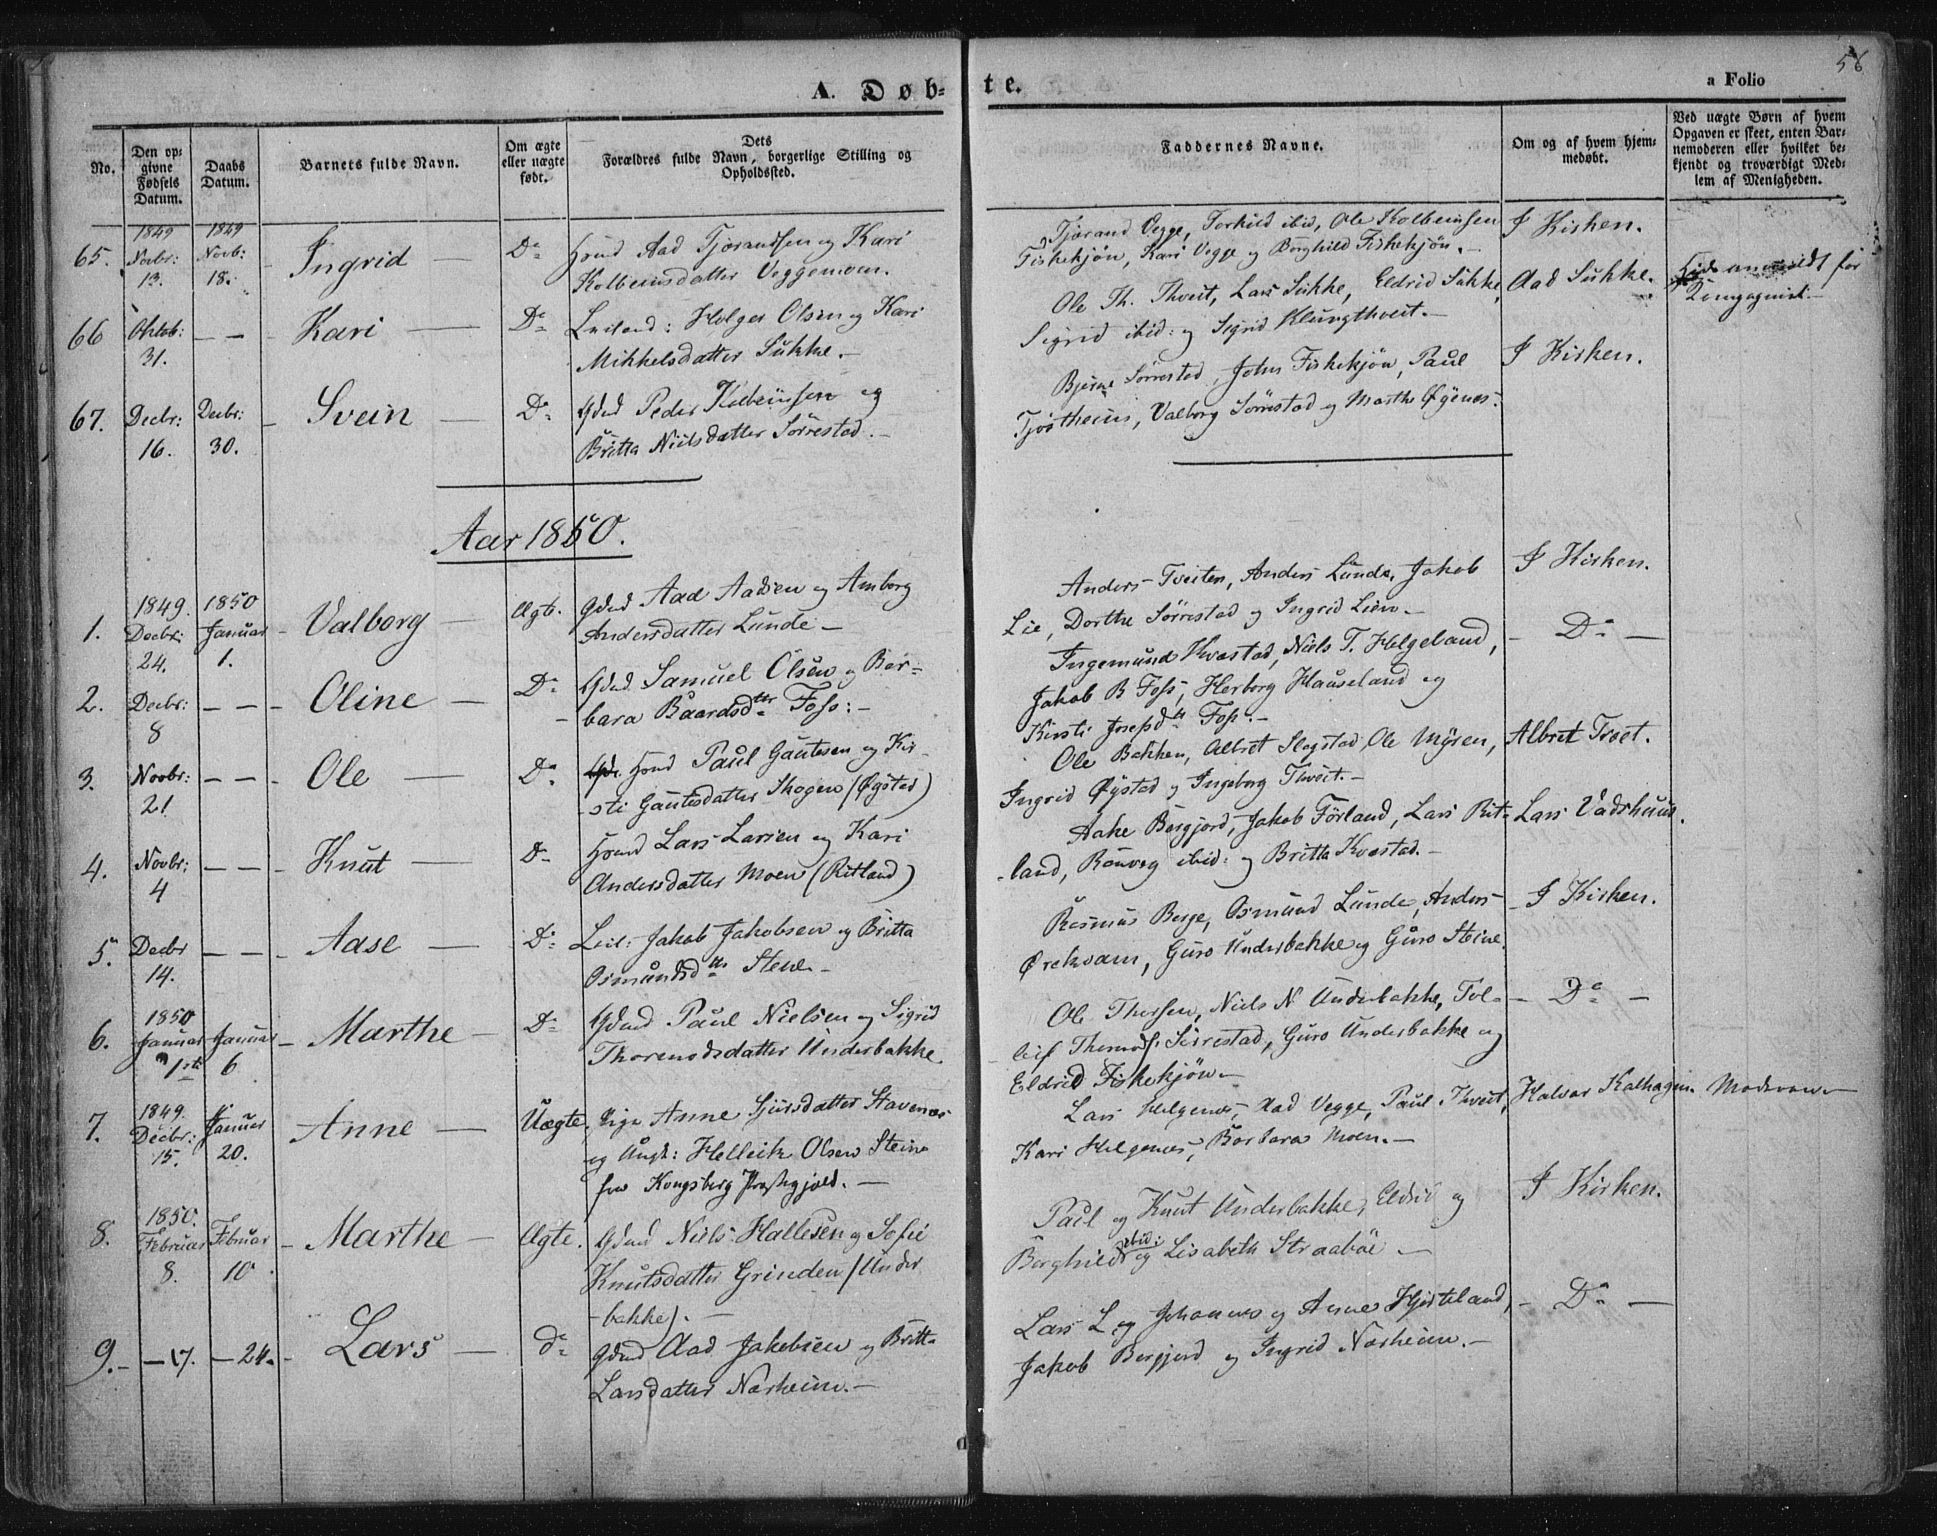 A. Døb-
te.
56
a Folio
No.
Den op-
givne
Fødsels
Datum.
Daabs
Datum.
Barnets fulde Navn.
Om ægte
eller uægte
født.
Dets
Forældres fulde Navn, borgerlige Stilling og
Opholdssted.
Faddernes Navne.
Om og af hvem hjem-
medøbt.
Ved uægte Børn af hvem
Opgaven er skeet, enten Bar-
nemoderen eller hvilket be-
kjendt og troværdigt Med-
lem af Menigheden.
65. 1849 Novbr: 13. 1849 Novb: 18. Ingrid Do Hsmd Aad Tjørandsen og Kari
Kolbeinsdatter Veggemoen.
Tjørand Vegge, Torkild ibid, Ole Kolbeinsen
Fiskekjön, Kari Vegge og Borghild Fiskekjön.
I Kirken.
66 Oktob: 31. — — Kari Do Leiland: Helge Olsen og Kari
Mikkelsdatter Sukke.
Ole Th. Thveit, Lars Sukke, Eldrid Sukke,
Sigrid ibid: og Sigrid Klungthveit.
Aad Sukke.
67. Decbr: 16. Decbr: 30. Svein Do Gdmd Peder Kolbeinsen og
Britta Nielsdatter Sørrestad.
Bjørne Sørrestad, John Fiskekjön, Paul
Tjøstheim, Valborg Sørrestad og Marthe Øÿenes.
I Kirken.
Aar 1850.
1. 1849. Decbr: 24. 1850 Januar 1. Valborg Ægte. Gdmd Aad Aadsen og Amborg
Andersdatter Lunde
Anders Tveiten, Anders Lunde, Jakob
Lie, Dorthe Sørrestad og Ingrid Lien.
I Kirken.
2. Decbr: 8 — — Oline Do Gdmd Samuel Olsen og Bar-
bara Baardsdtr Foss:
Ingemund Kvæstad, Niels T. Helgeland,
Jakob B Foss, Herborg Hauseland og
Kirsti Josepsdtr Foss.
Do
3. Novbr: 21 — — Ole Do Hsmd Paul Gautesen og Kir-
sti Gautesdatter Skogen (Øÿstad)
Ole Bakken, Albret Slogstad, Ole Mÿren,
Ingrid Øÿstad og Ingeborg Thveit.
Albret Tvet.
4. Novbr: 4 — — Knut Do Hsmd Lars Larsen og Kari
Andersdatter Moen (Ritland)
Aake Bergjord, Jakob Førland, Lars Rit-
land, Rönveg ibid: og Britta Kvæstad.
Lars Vadshuus.
5. Decbr 14. — — Aase Do Leil: Jakob Jakobsen og Britta
Osmundsdtr Stene
Rasmus Berge, Osmund Lunde, Anders
Ørekvam, Guro Underbakke og Guro Steine.
I Kirken.
6. 1850 Januar 1ste Januar 6 Marthe Do Gdmd Paul Nielsen og Sigrid
Thormodsdatter Underbakke
Ole Thorsen, Niels N Underbakke, Tol-
leif Thormods. Sørrestad, Guro Underbakke og
Eldrid Fiskekjön
Do
7. 1849. Decbr: 15. Januar 20. Anne Uægte, Pige Anne Sjursdatter Stavenæs
og Ungk: Helleik Olsen Steine
fra Kongsberg Præstegjæld.
Lars Helgenes, Aad Vegge, Paul Thveit,
Kari Helgenes, Barbara Moen.
Halvar Kalhagen. Moderen
8. 1850. Februar 8. Februar 10 Marthe Ægte. Gdmd Niels Hallesen og Sofie
Knutsdatter Grinden (Under
-bakke).
Paul og Knut Underbakke, Eldrid og
Borghild ibid: og Lisabeth Straabøe
I Kirken.
9. — 17. — 24. Lars do Gdmd Aad Jakobsen og Britta
Larsdatter Næsheim.
Lars L. og Johannes og Anna Hjorteland,
Jakob Bergjord og Ingrid Næsheim.
Do